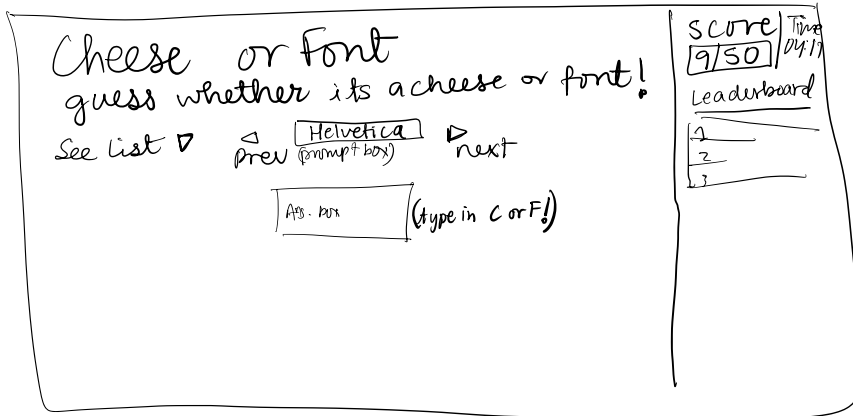 Cheese or Font
guess whether its a cheese or font!
See List
Helvetica
prev
(prompt box)
next
Ans. box
(type in C or F!)
score
9/50
Time
04:19
Leaderboard
1
2
3